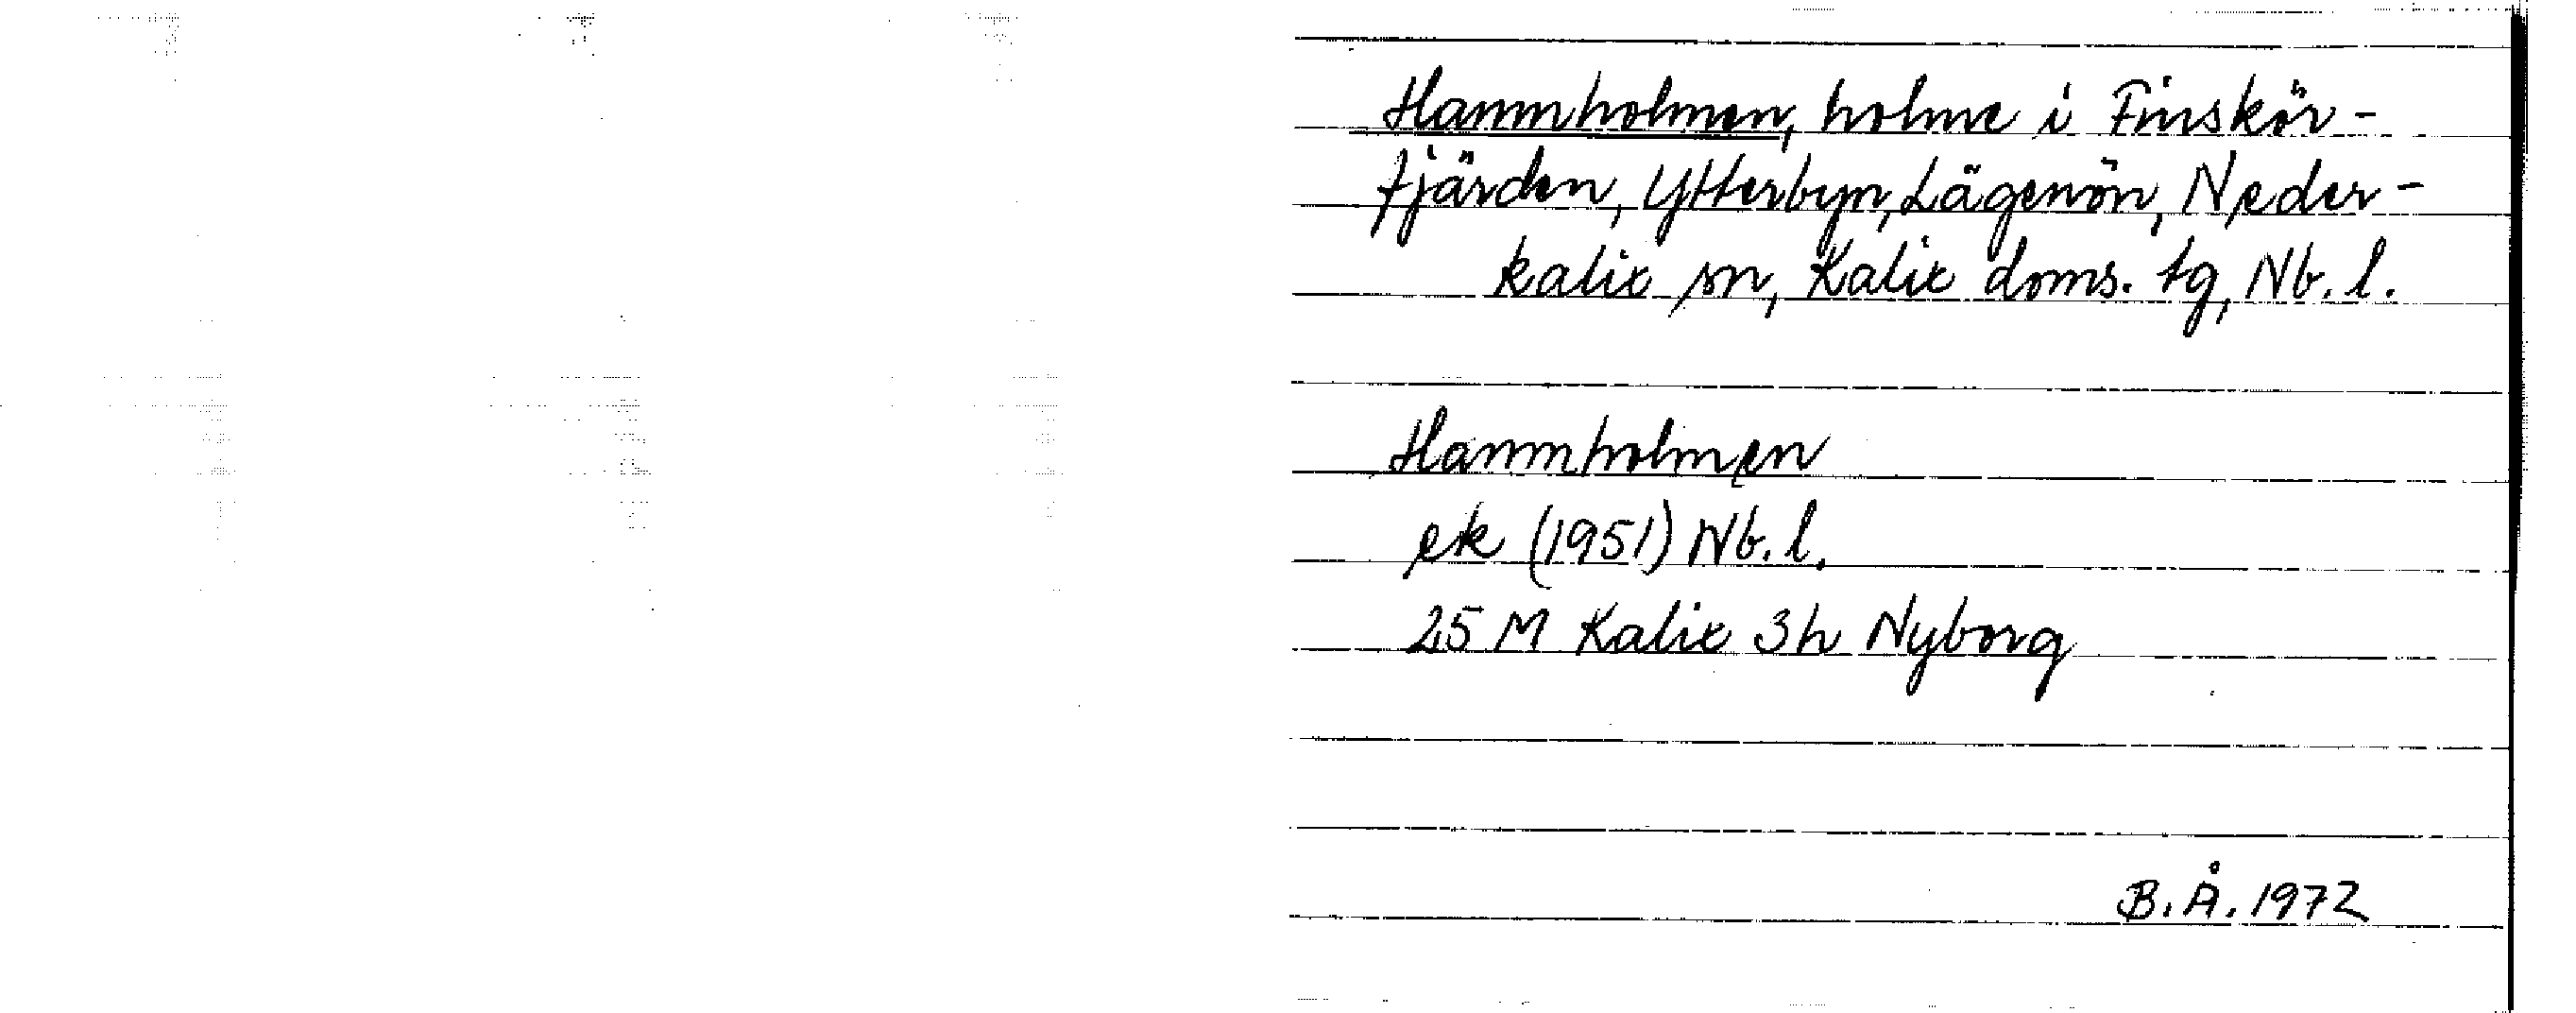 Hamnholmen, holme i Finskör-
fjärden, Ytterbyn, Lägenön, Neder-
kalix sn, Kalix doms. tg, Nb. l.
Hamnholmen
ek (1951) Nb. l.
25 M Kalix 3h Nyborg
B. Å. 1972